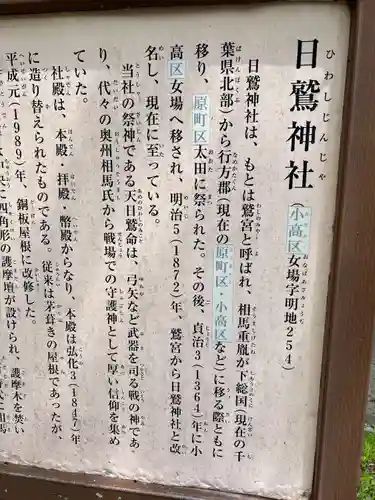 日鷲神社(小高区女場字明地254)
日鷲神社は、もとは鷲宮と呼ばれ、相馬重胤が下総国(現在の千
葉県北部)から行方郡(現在の原町区・小高区など)に移る際ともに
移り、原町区太田に祭られた。その後、貞治3(1364)年に小
高区女場へ移され、明治5(1872)年、鷲宮から日鷲神社と改
名し、現在に至っている。
当社の祭神である天日鷲命は、弓矢など武器を司る戦の神であ
り、代々の奥州相馬氏から戦場での守護神として厚い信仰を集め
ていた。
社殿は、本殿、拝殿、幣殿からなり、本殿は弘化3(1847)年
に造り替えられたものである。従来は茅葺きの屋根であったが、
平成元(1989)年、銅板屋根に改修した。
四角形の護摩壇が設けられ、護摩木を焚い